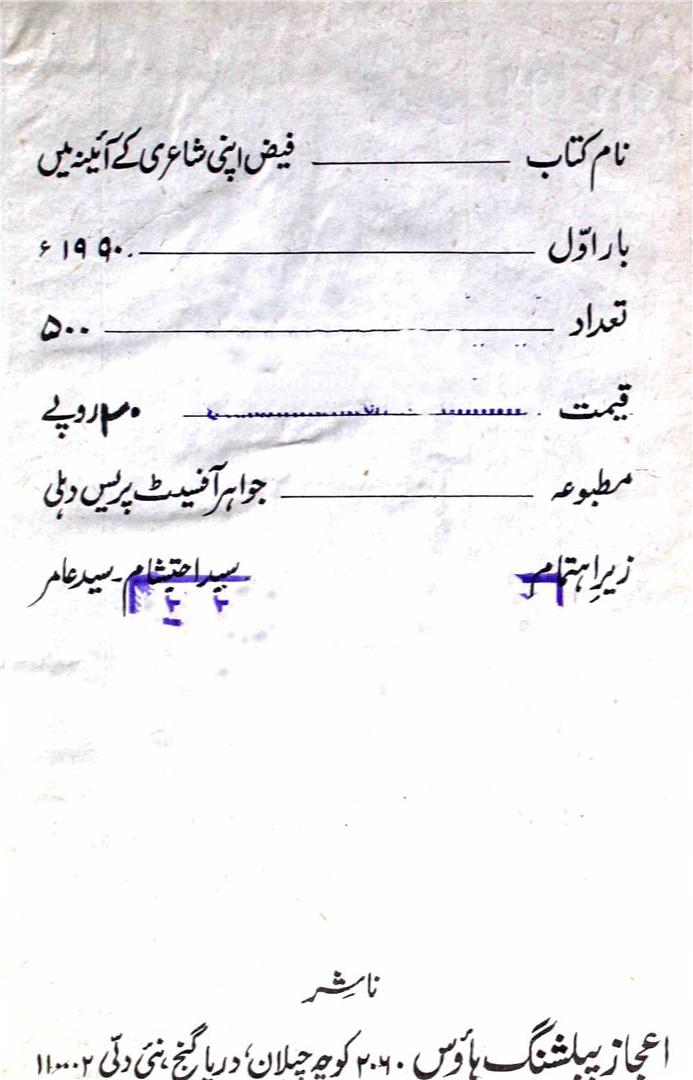 نام کتاب ـــــــ فیض اپنی شاعری کے آئینہ میں
بار اوّل ـــــــ ۱۹۹۰ء
تعداد ـــــــ ۵۰۰
قیمت ـــــــ روپے
مطبوعہ ـــــــ جواہر آفسیٹ پریس دہلی
زیرِ اہتمام سید احتشام۔ سید عامر
ناشر
اعجاز پبلشنگ ہاؤس ۲۰۶۰ کوچہ چیلان، دریا گنج، نئی دلّی ۱۱۰۰۰۲